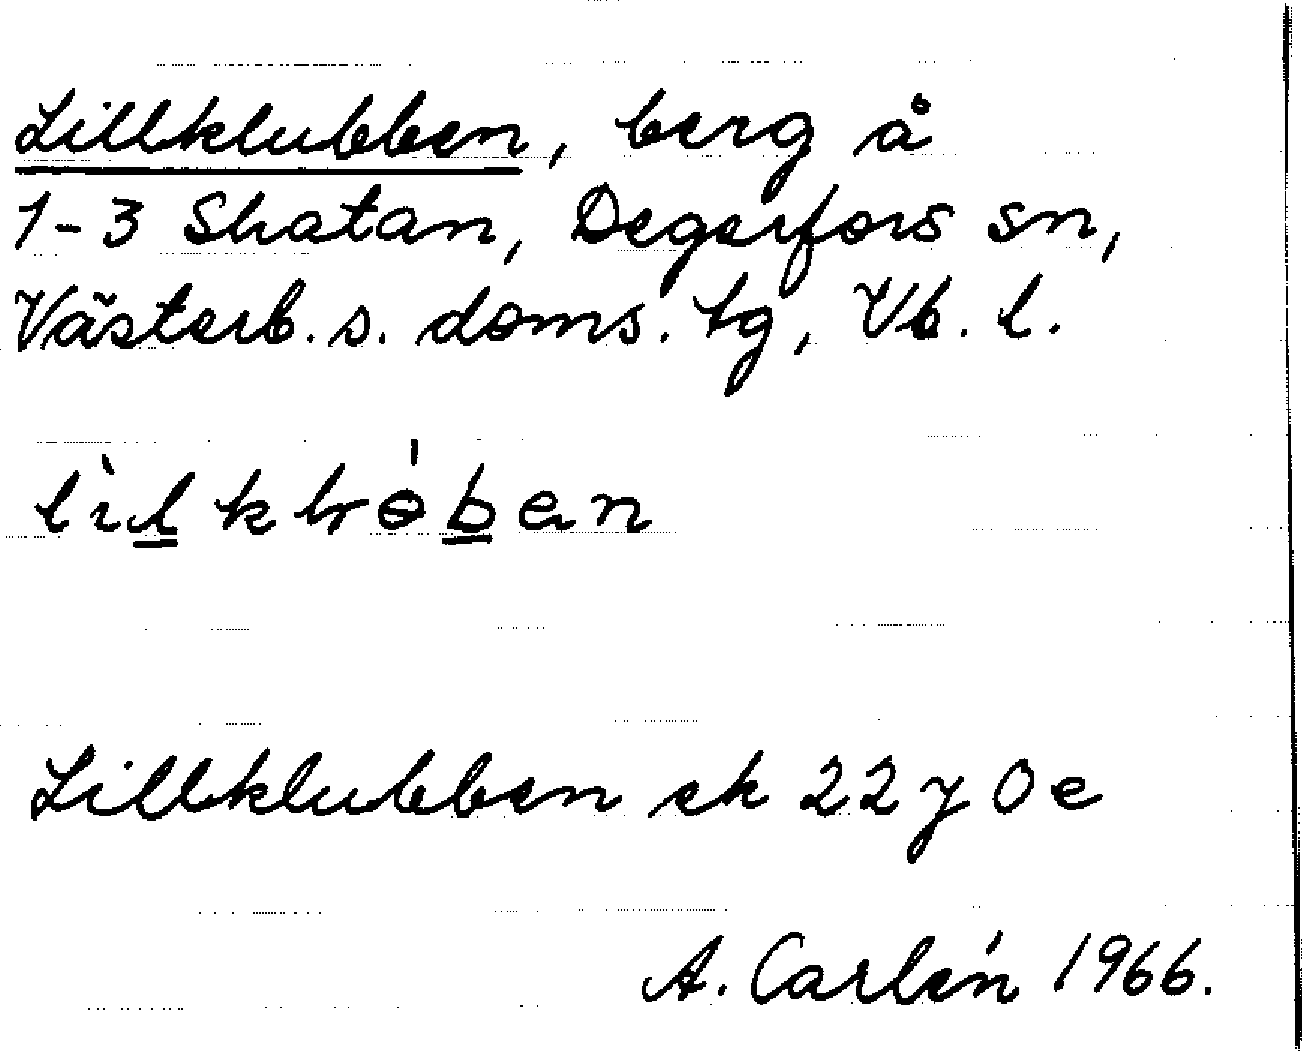 Lillklubben, berg å
1-3 Skatan, Degerfors sn,
Västerb. s. doms. tg, Vb. l.
lìl klɵ́ben
Lillklubben ek 22 y 0 e
A. Carlén 1966.